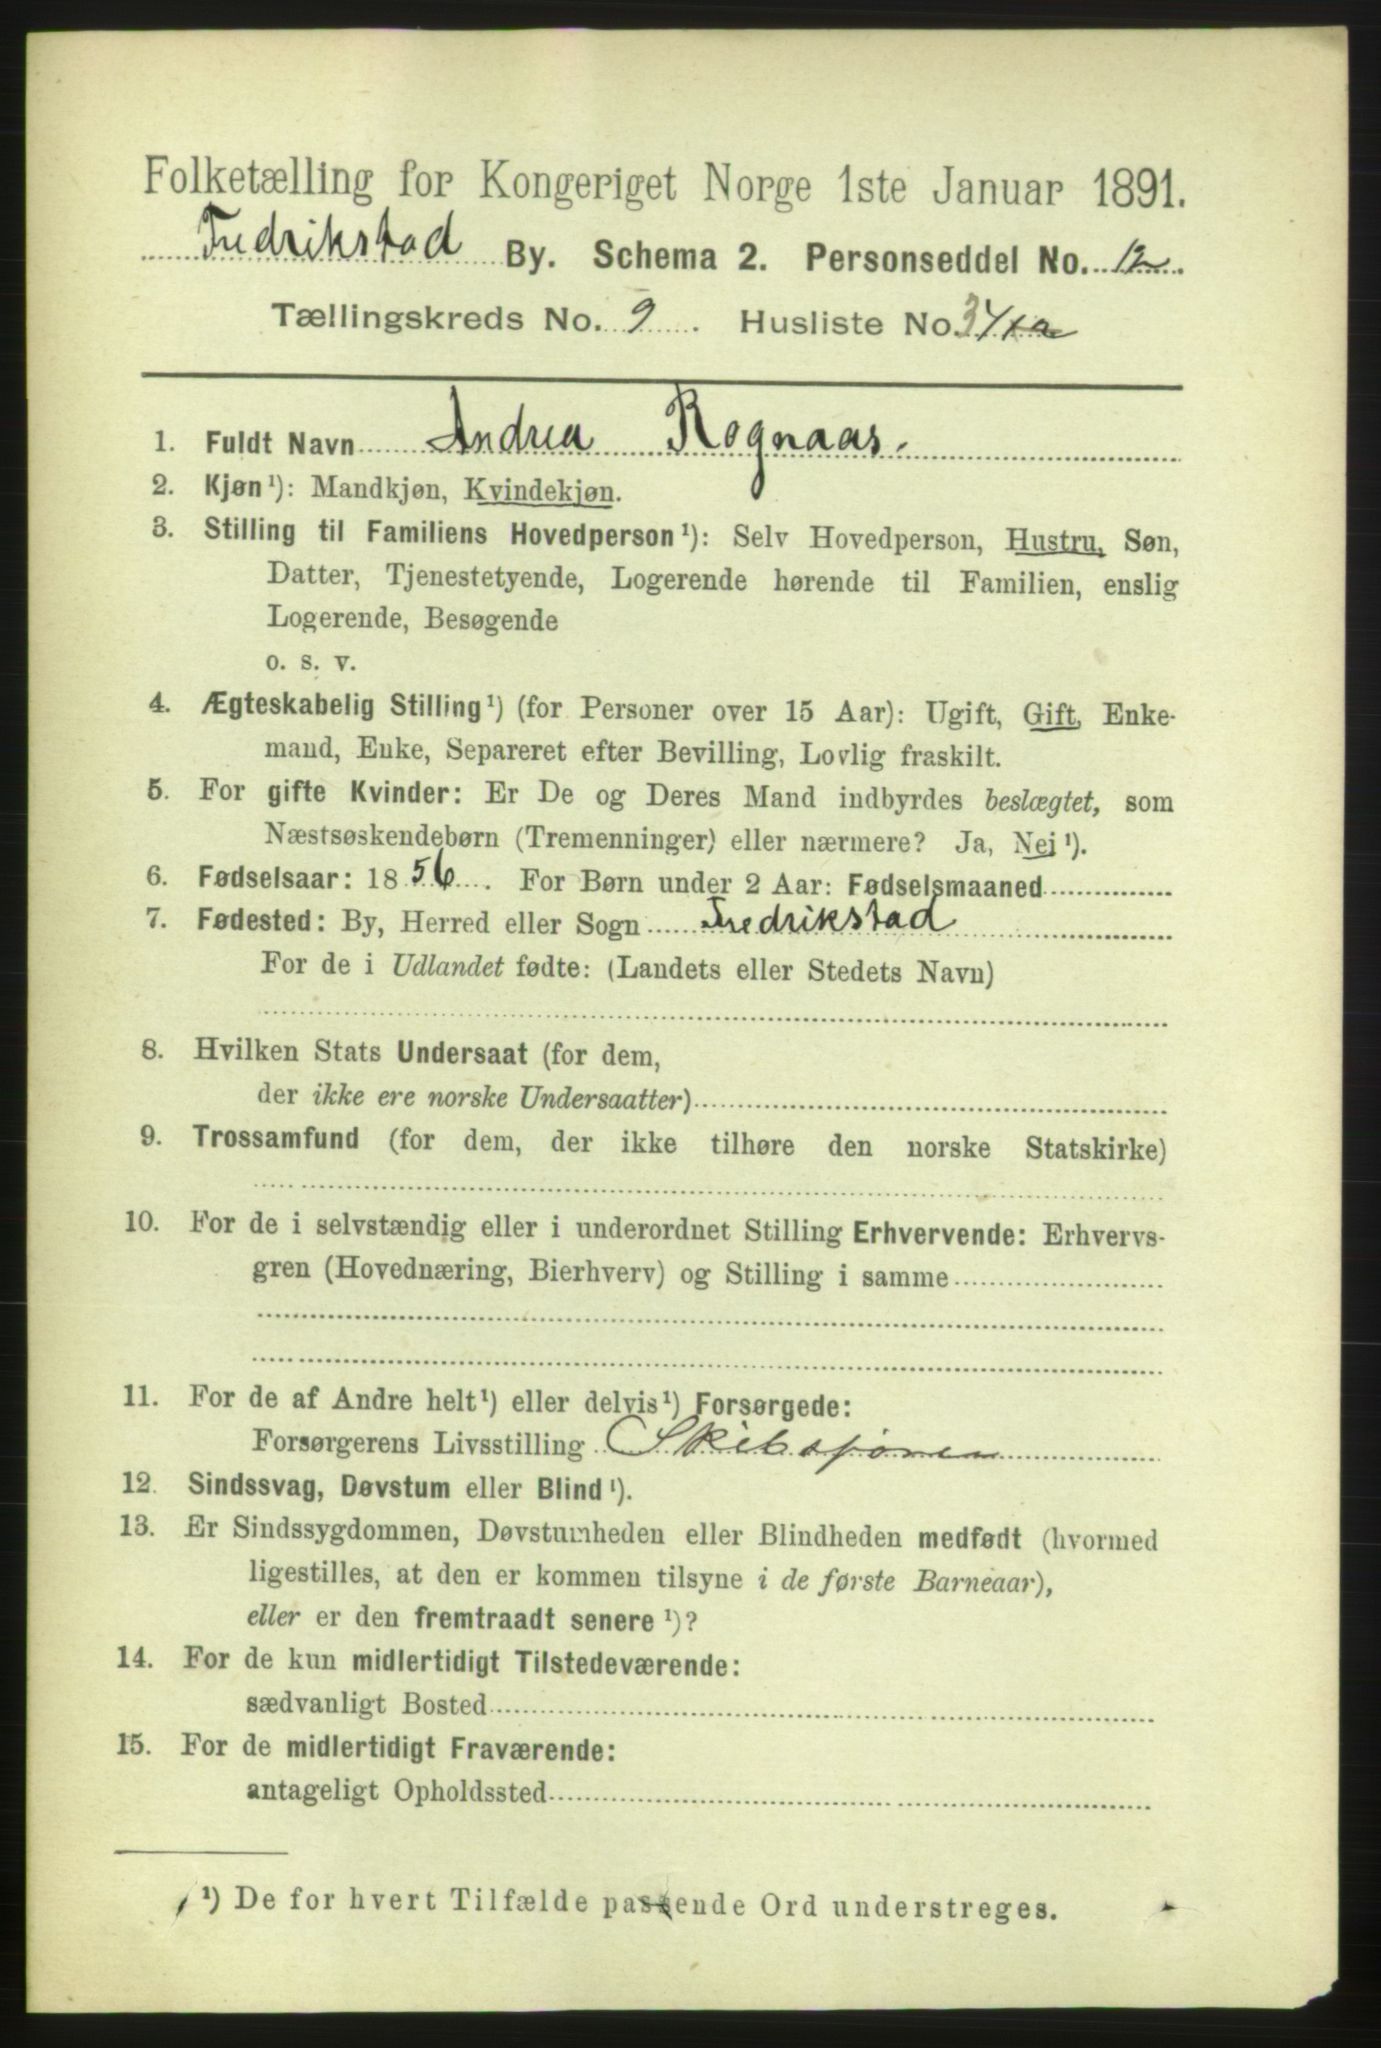 Folketælling for Kongeriget Norge 1ste Januar 1891.
Fredrikstad By. Schema 2. Personseddel No. 12.
Tællingskreds No. 9. Husliste No. 34
1. Fuldt Navn Andrea Rognaas.
2. Kjøn¹): Mandkjøn, Kvindekjøn.
3. Stilling til Familiens Hovedperson¹): Selv Hovedperson, Hustru, Søn,
Datter, Tjenestetyende, Logerende hørende til Familien, enslig
Logerende, Besøgende
o. s. v.
4. Ægteskabelig Stilling¹) (for Personer over 15 Aar): Ugift, Gift, Enke-
mand, Enke, Separeret efter Bevilling, Lovlig fraskilt.
5. For gifte Kvinder: Er De og Deres Mand indbyrdes beslægtet, som
Næstsøskendebørn (Tremenninger) eller nærmere? Ja, Nej¹).
6. Fødselsaar: 1856. For Børn under 2 Aar: Fødselsmaaned
7. Fødested: By, Herred eller Sogn Fredrikstad
For de i Udlandet fødte: (Landets eller Stedets Navn)
8. Hvilken Stats Undersaat (for dem,
der ikke ere norske Undersaatter)
9. Trossamfund (for dem, der ikke tilhøre den norske Statskirke)
10. For de i selvstændig eller i underordnet Stilling Erhvervende: Erhvervs-
gren (Hovednæring, Bierhverv) og Stilling i samme
11. For de af Andre helt¹) eller delvis¹) Forsørgede:
Forsørgerens Livsstilling
12. Sindssvag, Døvstum eller Blind¹).
13. Er Sindssygdommen, Døvstumheden eller Blindheden medfødt (hvormed
ligestilles, at den er kommen tilsyne i de første Barneaar),
eller er den fremtraadt senere¹)?
14. For de kun midlertidigt Tilstedeværende:
sædvanligt Bosted
15. For de midlertidigt Fraværende:
antageligt Opholdssted
¹) De for hvert Tilfælde passende Ord understreges.